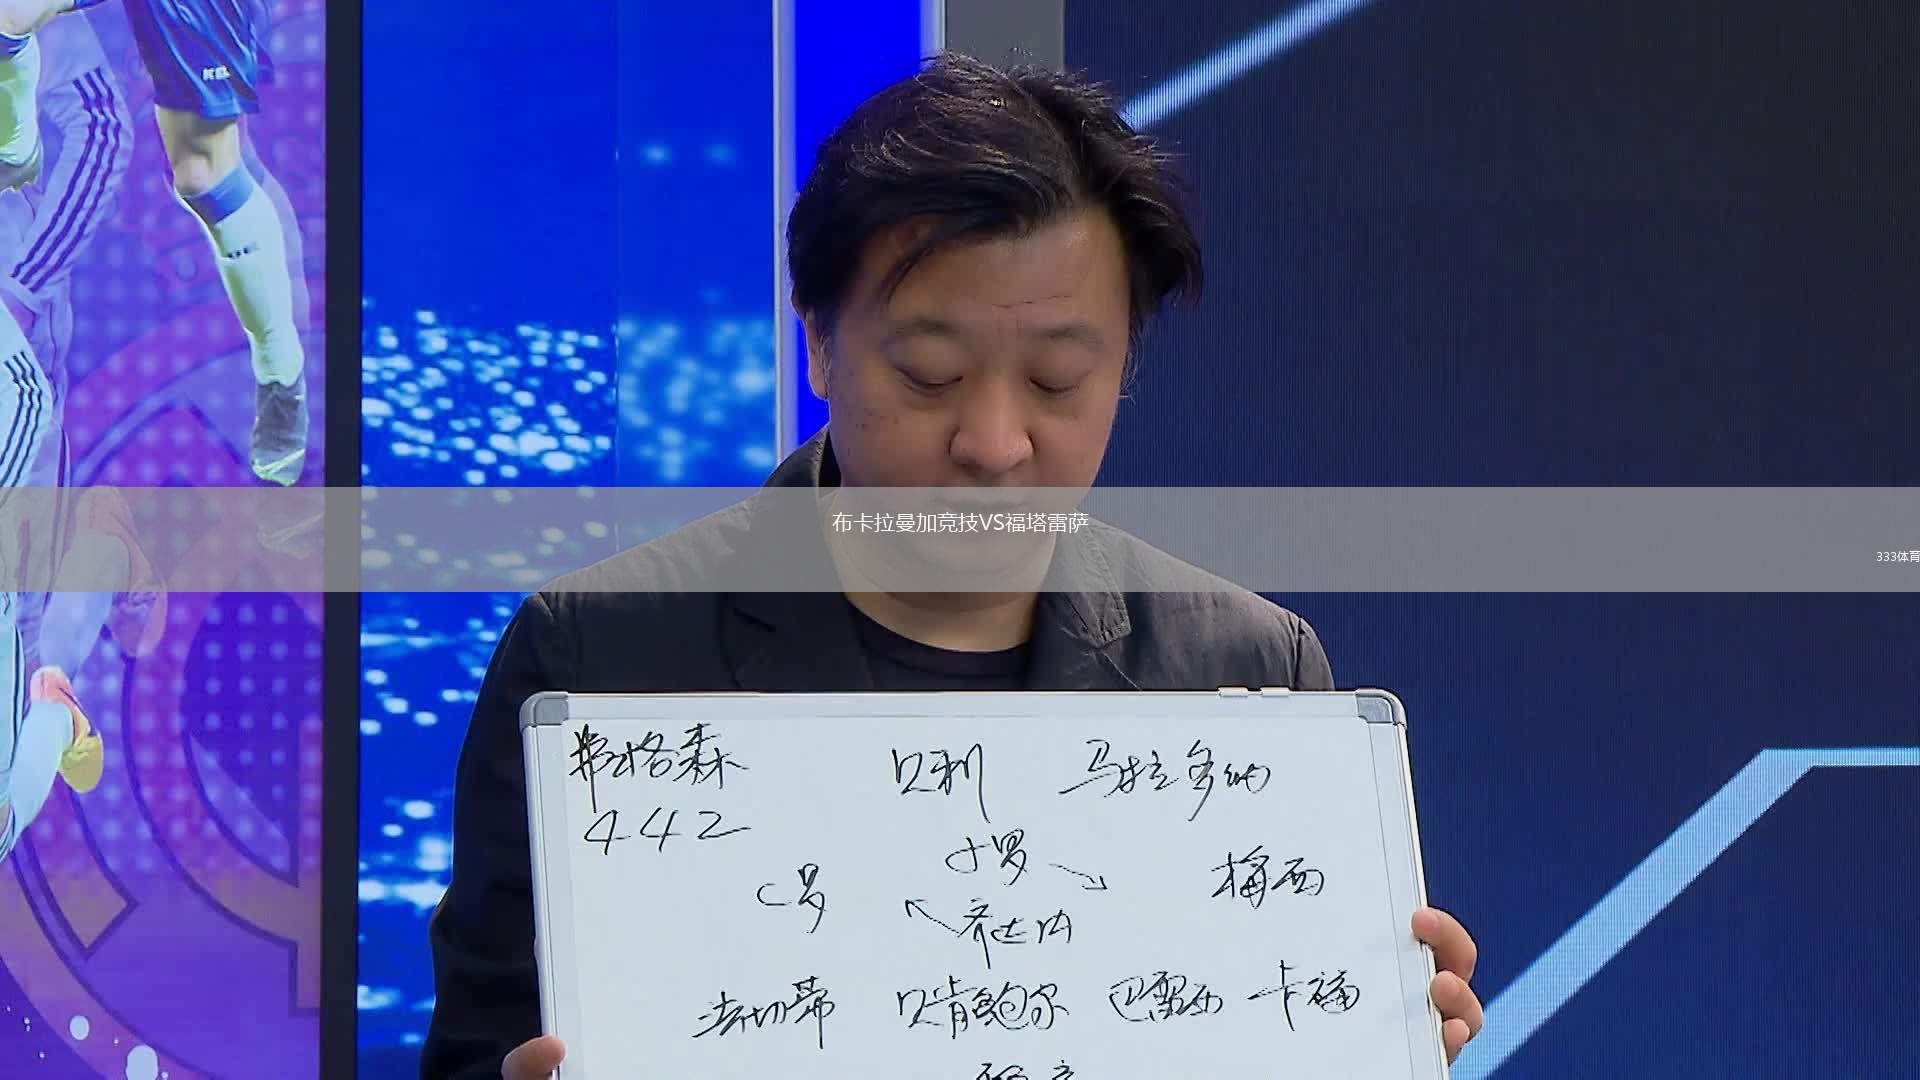 布卡拉曼加竞技VS福塔雷萨
333体育
弗格森 贝利 马拉多纳
442
小罗
C罗 梅西
齐达内
法切蒂 贝肯鲍尔 巴雷西 卡福